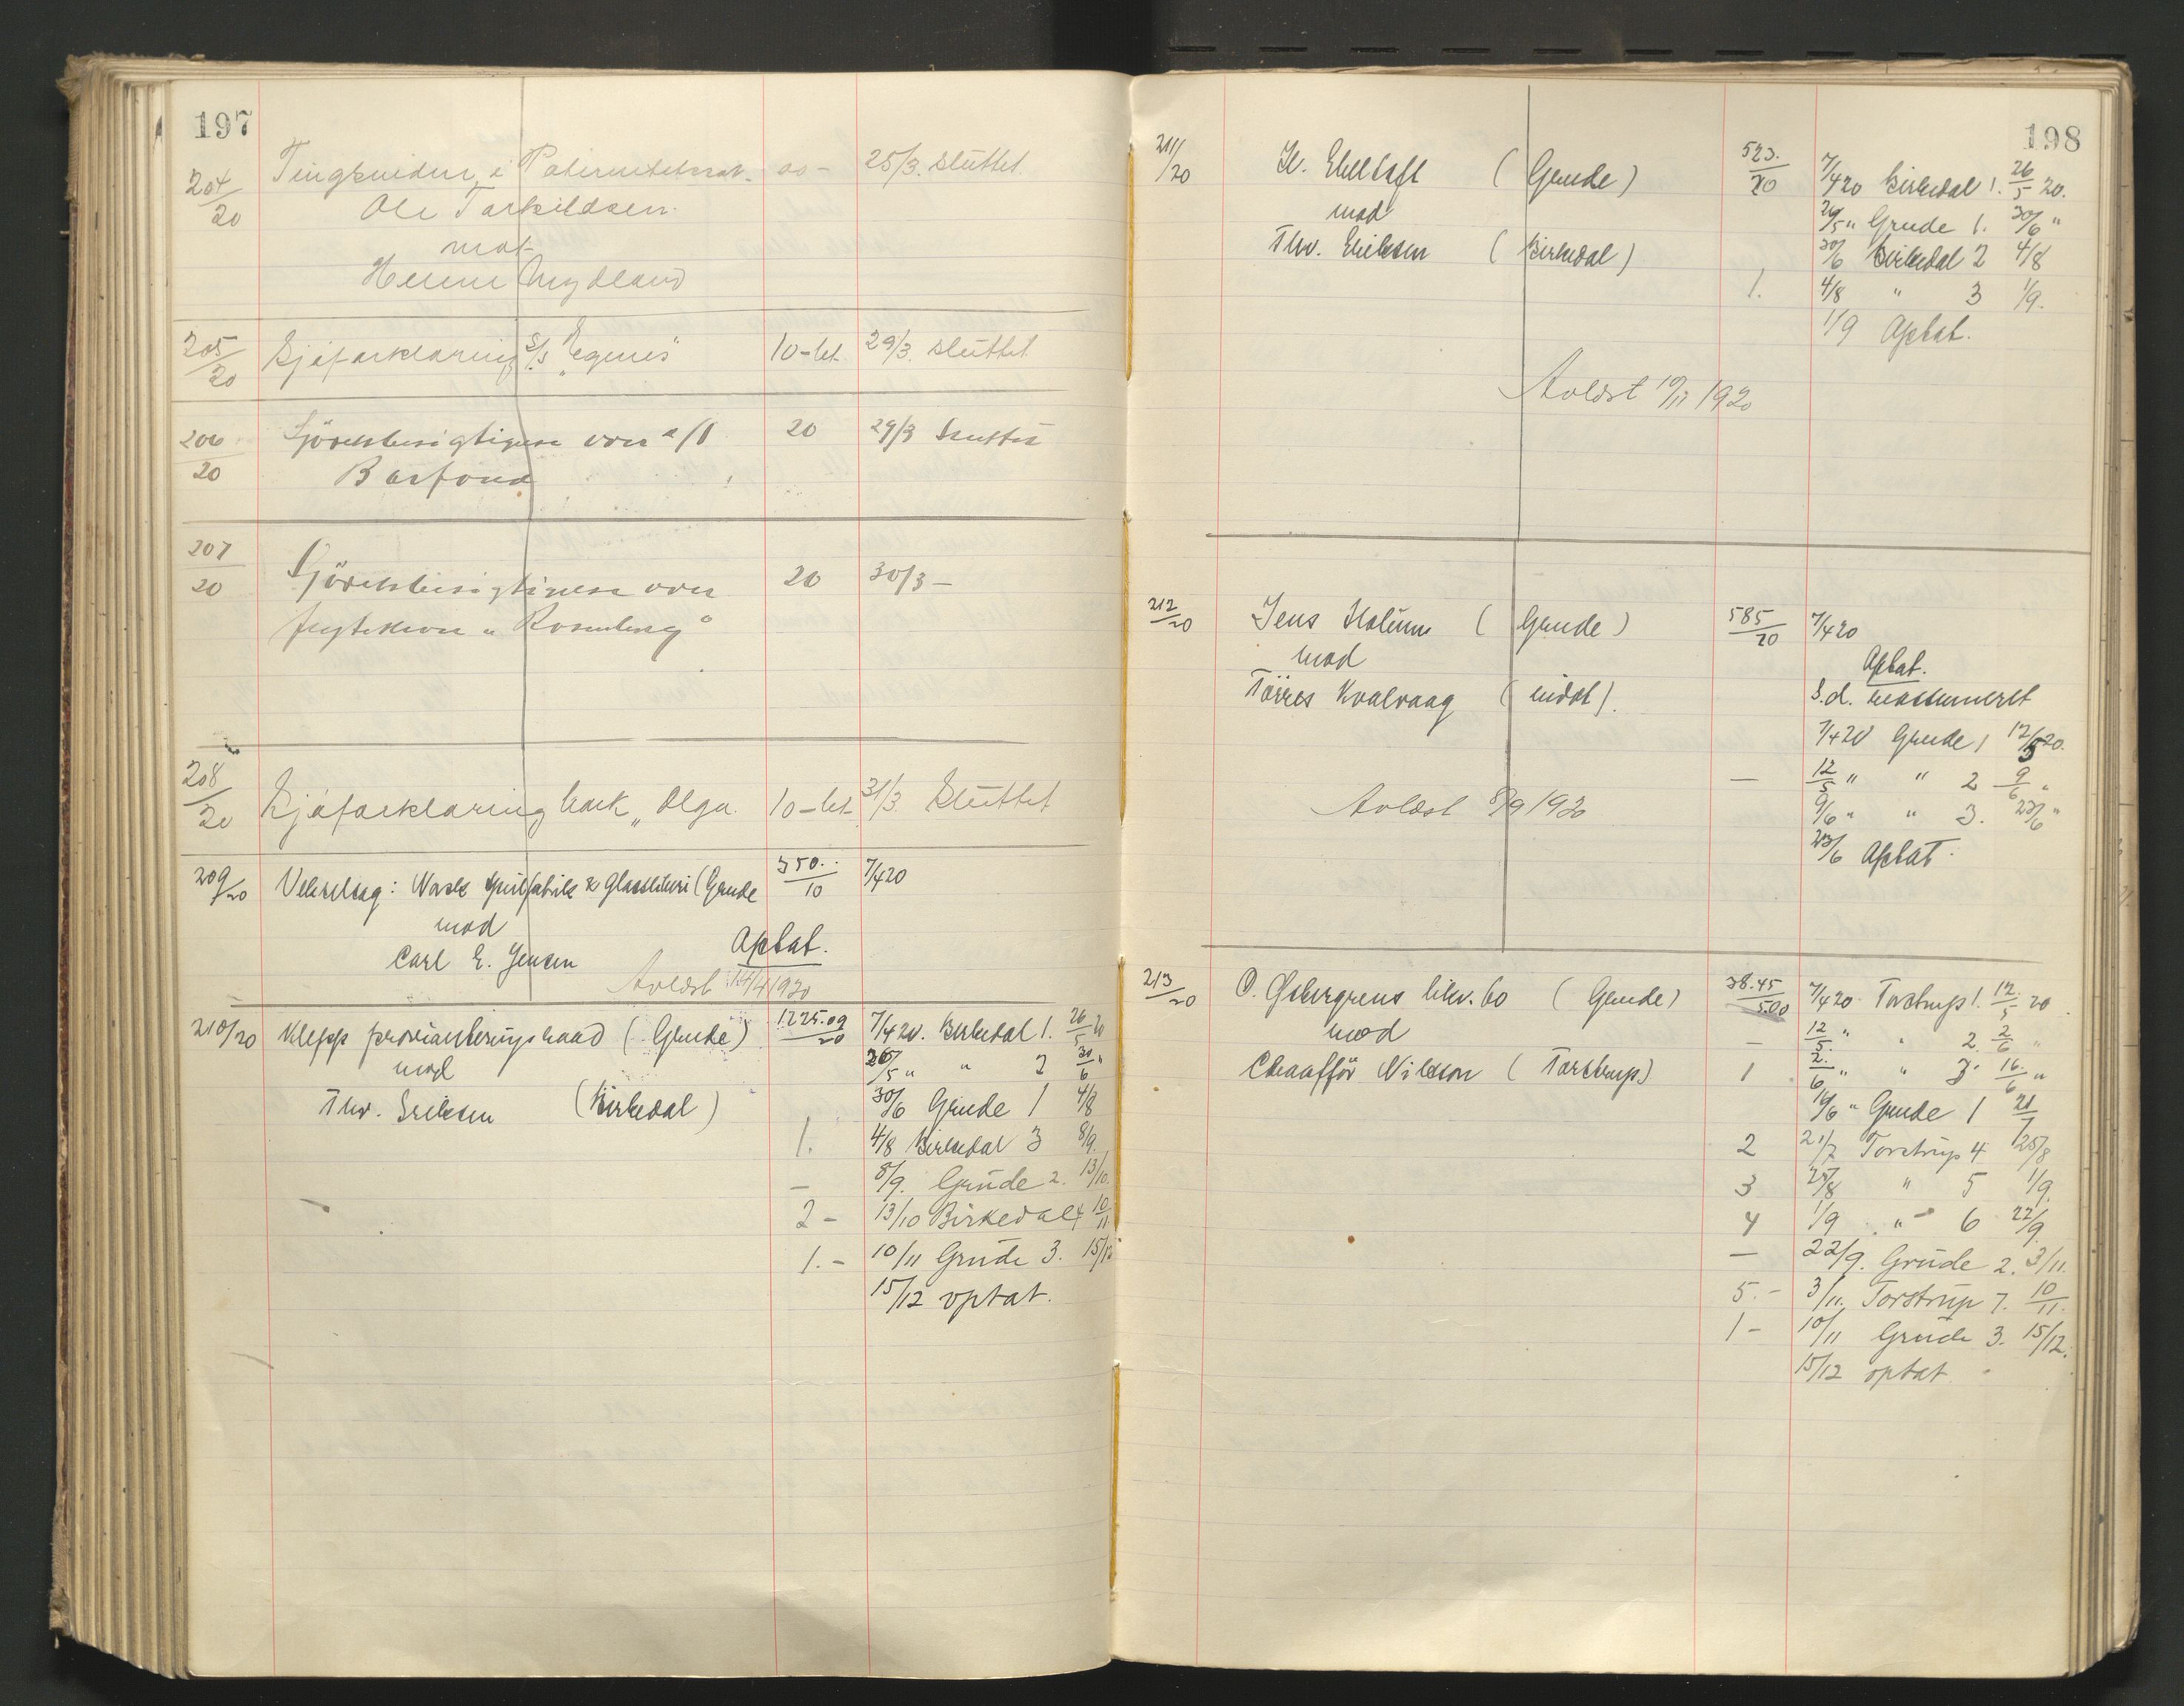 197
204/20 Tingsvidne i Paternitetssak. 20 - 25/3. sluttet.
Ole Torkildsen
mot
Helene Nydland
205/20 Sjøforklaring s/s "Egenes" 10 - bet. 29/3. sluttet
206/20 over 20 29/3 Sluttet
Barfond
207/20 over 20 30/3 -
"Rosenberg"
208/20 Sjøforklaring bark "Olga. 10 - bet. 31/3. Sluttet
209/20 Vekselsag: Norsk speilfabrik & Glassliberi (Grude 350../10 7/4 20
mod
Carl E. Jensen Optat.
Avlæst 14/4 1920
210/20 Klepp provianteringsraad (Grude) 1225.09/20 7/4 20. Birkedal 1. 26/5 20
mod 26/5 " " 2 30/6 "
Thv. Eriksen (Birkedal) 30/6 Grude 1 4/8
1. 4/8 Birkedal 3 8/9.
— 8/9. Grude 2. 13/10.
2 - 13/10 Birkedal 4 10/11
1. - 10/11 Grude 3. 15/12
15/12 optat.
198
211/20 (Grude) 523./20 7/4 20 Birkedal 1. 26/5 20.
mod 26/5 " Grude 1. 30/6 "
Thv. Eriksen (Birkedal) 30/6 Birkedal 2 4/8
1. 4/8 " 3 1/9.
1/9 Optat.
Avlæst 10/11 1920
212/20 Jens (Grude) 585/20 7/4 20
mod Optat.
Tørres Kvalvaag (indst). S.d. reassumeret
7/4 20 Grude 1 12/5 20.
— 12/5 " " 2 9/6 "
Avlæst 8/9 1920 9/6 " " 3. 23/6 "
23/6 Optat.
213/20 O. likv. bo (Grude) 38.45/500 7/4 20 Torstrup 1. 12./5 20
mod — 12/5. " " 2. 2/6 "
Chauffør Nilsson (Torstrup) 1 2./6 " " 3. 16./6 "
16/6 " Grude 1 21/7
2 21/7 Torstrup 4 25/8
3 25/8 " 5 1/9.
4 1/9 " 6 22/9.
— 22/9. Grude 2. 3/11.
5. - 3/11. Torstrup 7. 10/11.
1 - 10/11 Grude 3. 15/12.
15/12 optat.